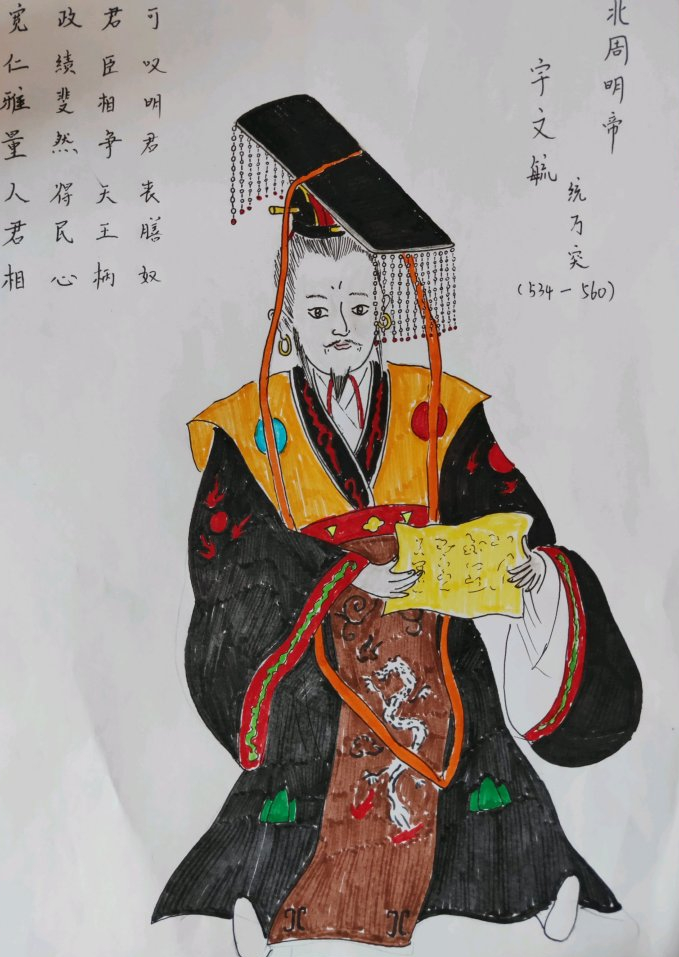 北周明帝
宇文毓
统万突
(534－560)
可叹明君丧膳奴
君臣相争天王柄
政绩斐然得民心
宽仁雅量人君相